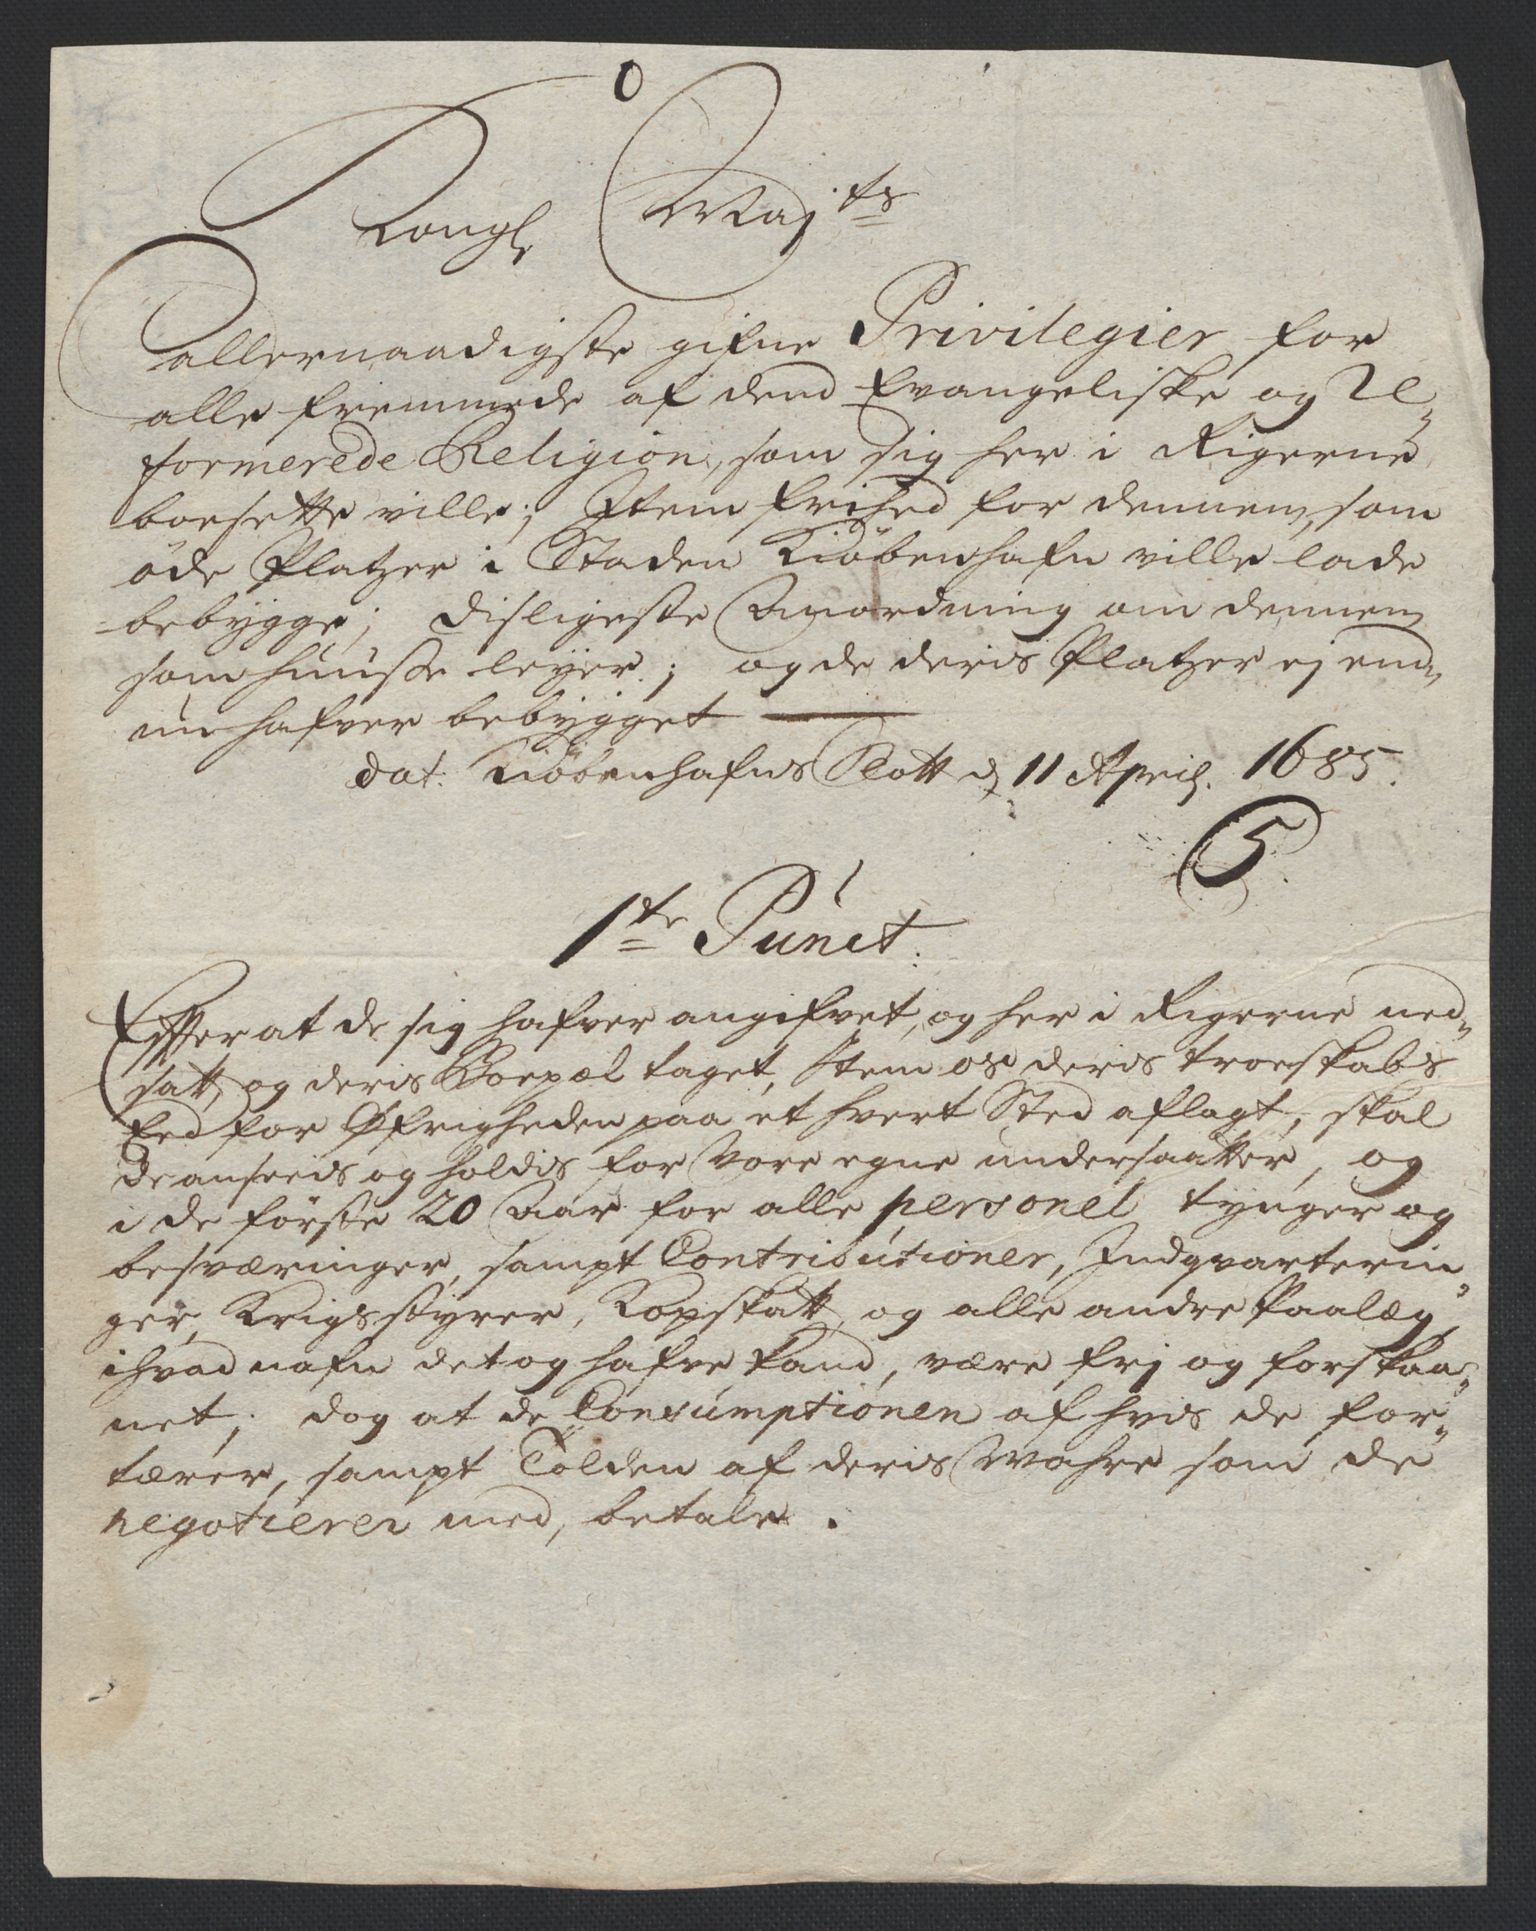 Kongl Maj.ts
allernaadigste gifne Privilegier for
alle fremmede af dend Evangeliske og Re-
formerede Religion, som sig her i Rigerne
boesette ville; Item frihed for dennem, som
öde Platzer i Staden Kiöbenhafn ville lade
bebygge; disligeste Anordning om dennem
som huusse leyer; og de deris Platzer ej end-
nu hafver bebygget
dat. Kiöbenhafns Slott d 11 April. 1685.
5.
1te Punct.
Effterat de sig hafver angifvet, og her i Rigerne ned-
satt, og deris Boepæl taget, Item os deris troeskabs
Eed for Øfrigheden paa et hvert Sted aflagt, skal
de ansees og holdis for Vore egne undersaatter, og
i de förste 20 Aar for alle personel tynger og
besværinger, sampt Contributioner, Indqvarterin-
ger, Krigsstyrer, Kopskatt, og alle andre Paalæg,
ihvad nafn det og hafve kand, være frj og forskaa-
net; dog at de Consumptionen af hvis de for-
tærer, sampt Tolden af deris Wahre som de
negotierer med, betale.